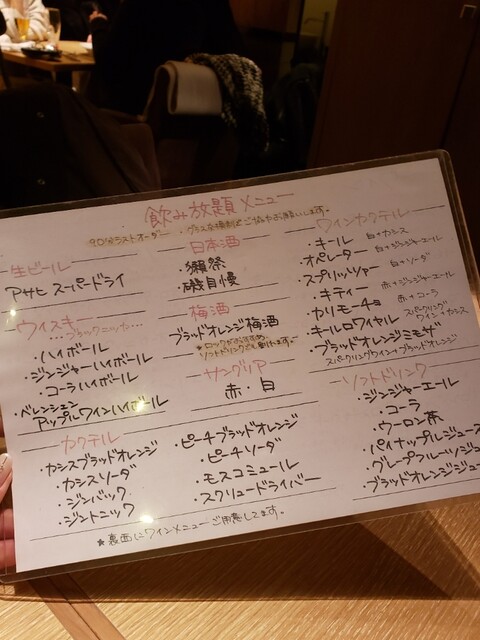 飲み放題メニュー
90分ラストオーダー ・グラス交換制でご協力お願いします。
生ビール
アサヒ スーパードライ
ウイスキー
…ブラックニッカ…
・ハイボール
・ジンジャーハイボール
・コーラハイボール
・バレンシェン
アップルワインハイボール
日本酒
・獺祭
・磯自慢
梅酒
ブラッドオレンジ梅酒
★ロックがおすすめ。
ソフトドリンクでも割れます。
サングリア
赤・白
ワインカクテル
・キール 白+カシス
・オペレーター 白+ジンジャーエール
・スプリッツァー 白+ソーダ
・キティー 赤+ジンジャーエール
・カリモーチョ 赤+コーラ
・キールロワイヤル スパークリングワイン+カシス
・ブラッドオレンジミモザ
スパークリングワイン+ブラッドオレンジ
カクテル
・カシスブラッドオレンジ
・カシスソーダ
・ジンバック
・ジントニック
・ピーチブラッドオレンジ
・ピーチソーダ
・モスコミュール
・スクリュードライバー
ソフトドリンク
・ジンジャーエール
・コーラ
・ウーロン茶
・パイナップルジュース
・グレープフルーツジュ
・ブラッドオレンジジュ
★裏面にワインメニューご用意してます。